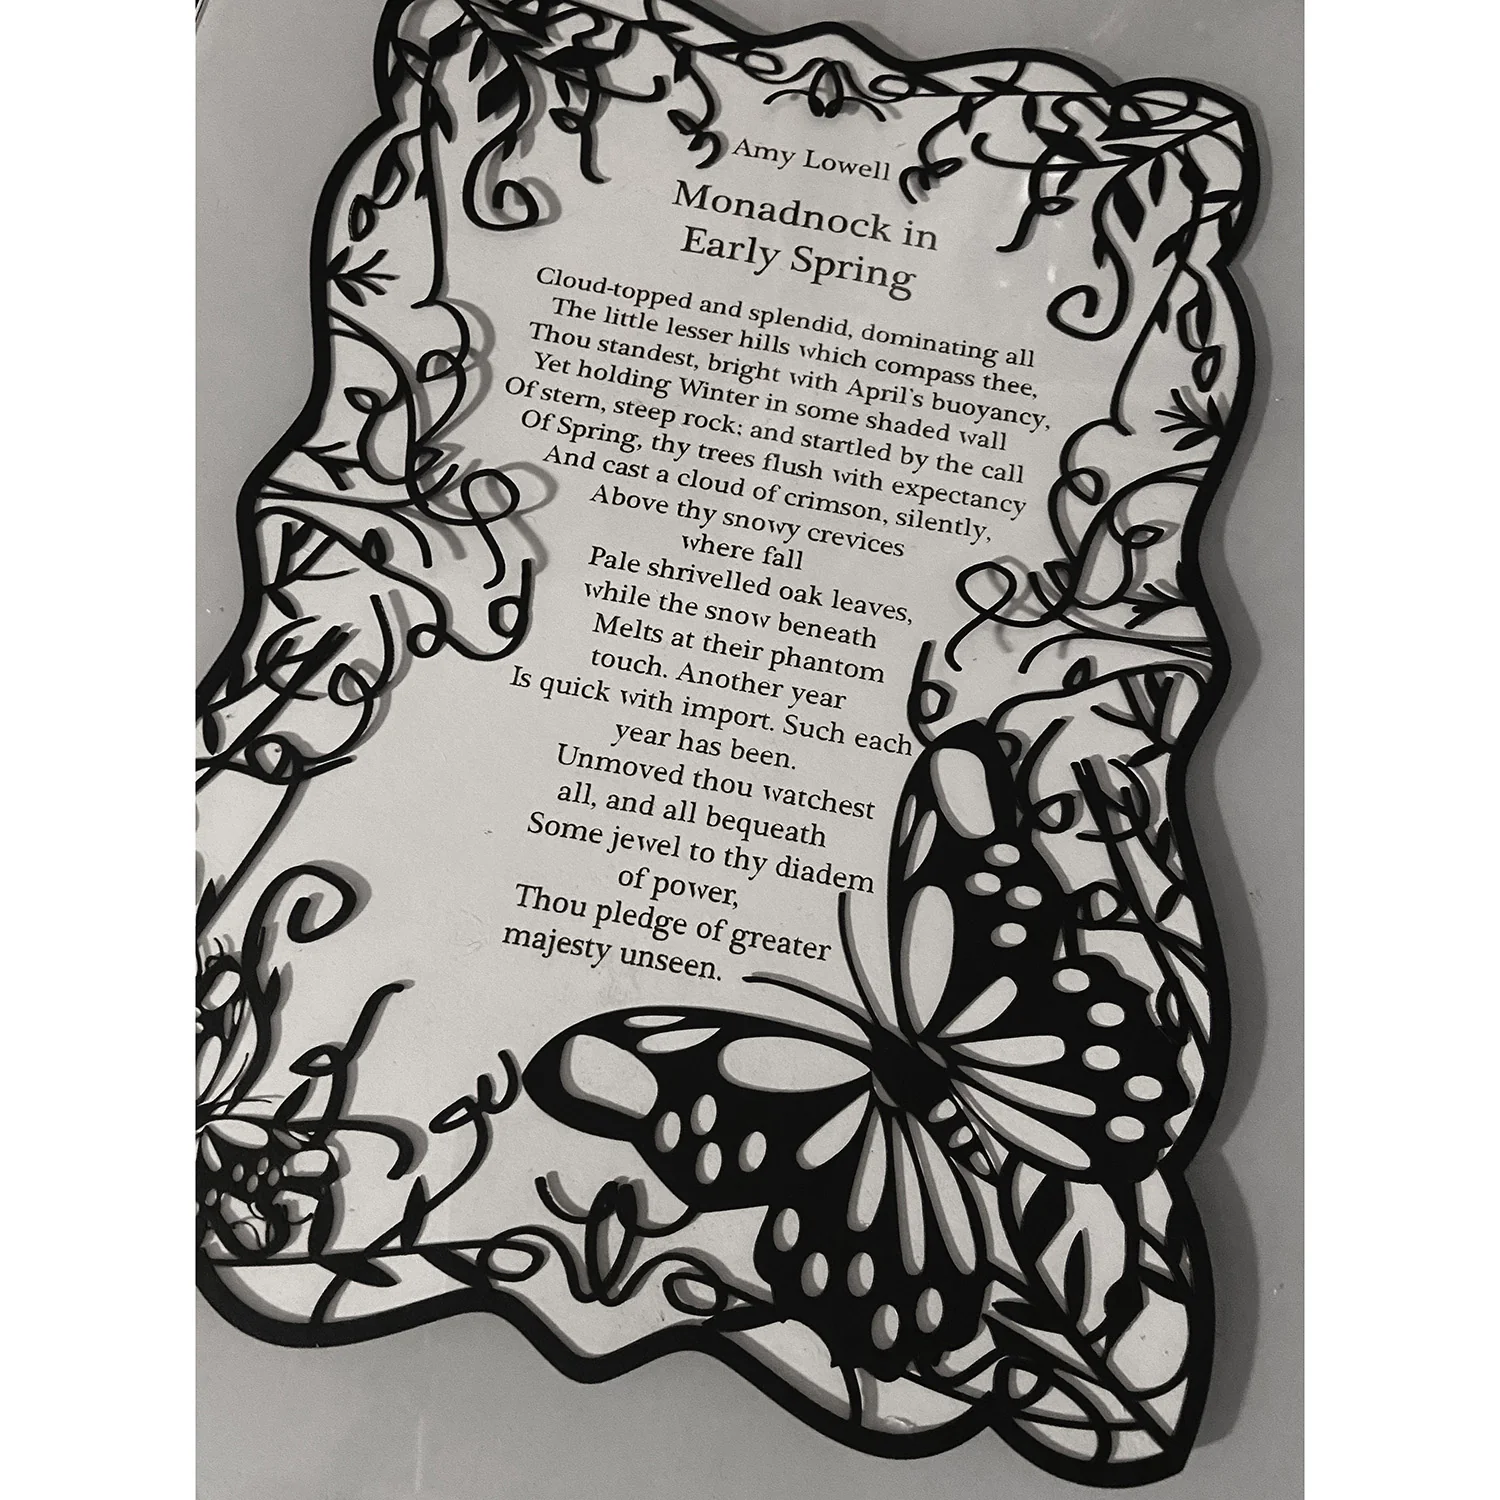 Amy Lowell
Monadnock in
Early Spring
Cloud-topped and splendid, dominating all
The little lesser hills which compass thee,
Thou standest, bright with April's buoyancy,
Yet holding Winter in some shaded wall
Of stern, steep rock; and startled by the call
Of Spring, thy trees flush with expectancy
And cast a cloud of crimson, silently,
Above thy snowy crevices
where fall
Pale shrivelled oak leaves,
while the snow beneath
Melts at their phantom
touch. Another year
Is quick with import. Such each
year has been.
Unmoved thou watchest
all, and all bequeath
Some jewel to thy diadem
of power,
Thou pledge of greater
majesty unseen.